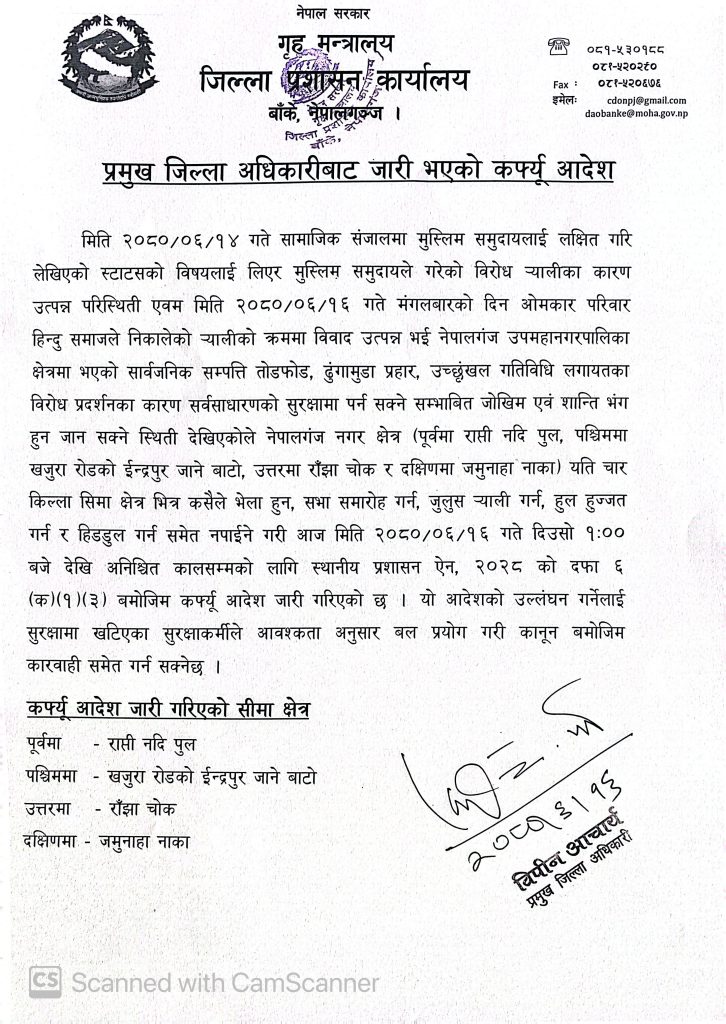 नेपाल सरकार
गृह मन्त्रालय
जिल्ला प्रशासन कार्यालय
बाँके, नेपालगञ्ज ।
०८१-५३०१८८
०८१-५२०२९०
Fax : ०८१-५२०६७६
इमेलः cdonpj@gmail.com
daobanke@moha.gov.np
नेपाल सरकार
गृह मन्त्रालय
जिल्ला प्रशासन कार्यालय
बाँके, नेपालगञ्ज
प्रमुख जिल्ला अधिकारीबाट जारी भएको कर्फ्यू आदेश
मिति २०८०/०६/१४ गते सामाजिक संजालमा मुस्लिम समुदायलाई लक्षित गरि
लेखिएको स्टाटसको विषयलाई लिएर मुस्लिम समुदायले गरेको विरोध ऱ्यालीका कारण
उत्पन्न परिस्थिती एवम मिति २०८०/०६/१६ गते मंगलबारको दिन ओमकार परिवार
हिन्दु समाजले निकालेको ऱ्यालीको क्रममा विवाद उत्पन्न भई नेपालगंज उपमहानगरपालिका
क्षेत्रमा भएको सार्वजनिक सम्पत्ति तोडफोड, ढुंगामुडा प्रहार, उच्छृंखल गतिविधि लगायतका
विरोध प्रदर्शनका कारण सर्वसाधारणको सुरक्षामा पर्न सक्ने सम्भाबित जोखिम एवं शान्ति भंग
हुन जान सक्ने स्थिती देखिएकोले नेपालगंज नगर क्षेत्र (पूर्वमा राप्ती नदि पुल, पश्चिममा
खजुरा रोडको ईन्द्रपुर जाने बाटो, उत्तरमा राँझा चोक र दक्षिणमा जमुनाहा नाका) यति चार
किल्ला सिमा क्षेत्र भित्र कसैले भेला हुन, सभा समारोह गर्न, जुलुस ऱ्याली गर्न, हुल हुज्जत
गर्न र हिडडुल गर्न समेत नपाईने गरी आज मिति २०८०/०६/१६ गते दिउसो १:००
बजे देखि अनिश्चित कालसम्मको लागि स्थानीय प्रशासन ऐन, २०२८ को दफा ६
(क)(१)(३) बमोजिम कर्फ्यू आदेश जारी गरिएको छ । यो आदेशको उल्लंघन गर्नेलाई
सुरक्षामा खटिएका सुरक्षाकर्मीले आवश्कता अनुसार बल प्रयोग गरी कानून बमोजिम
कारवाही समेत गर्न सक्नेछ ।
कर्फ्यू आदेश जारी गरिएको सीमा क्षेत्र
पूर्वमा - राप्ती नदि पुल
पश्चिममा - खजुरा रोडको ईन्द्रपुर जाने बाटो
उत्तरमा - राँझा चोक
दक्षिणमा - जमुनाहा नाका
विपीन आचार्य
प्रमुख जिल्ला अधिकारी
CS Scanned with CamScanner